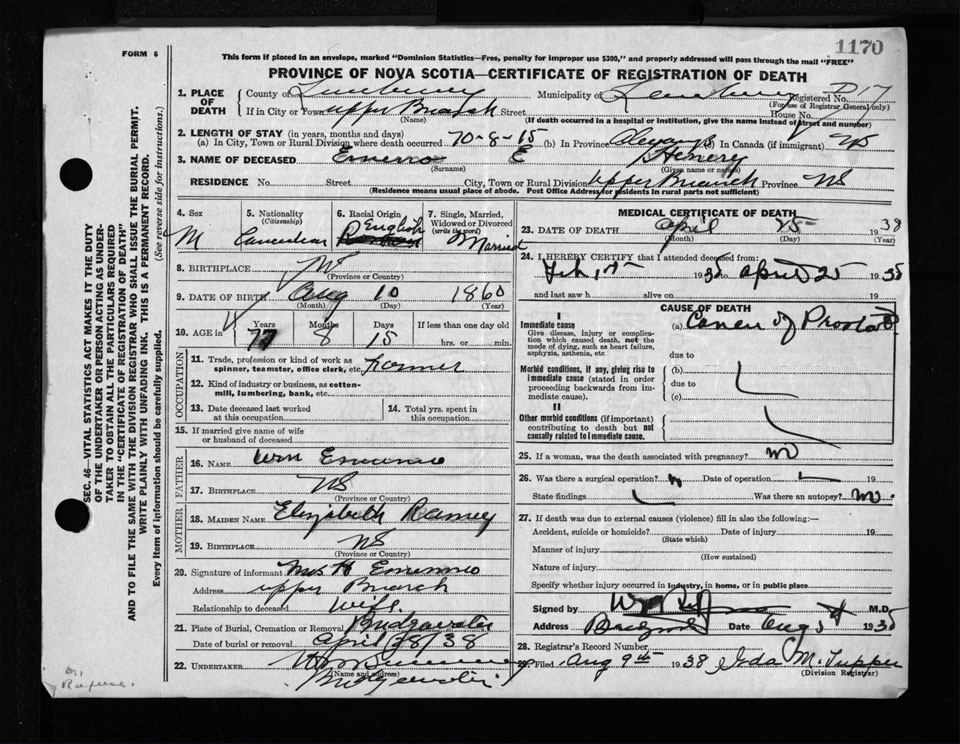 1170
FORM 6
This form if placed in an envelope, marked "Dominion Statistics—Free, penalty for improper use $300," and properly addressed will pass through the mail "FREE"
PROVINCE OF NOVA SCOTIA—CERTIFICATE OF REGISTRATION OF DEATH
1. PLACE OF DEATH County of Lunenburg Municipality of Lunenburg Registered No. D17
(For use of Registrar General only)
If in City or Town Upper Branch Street House No.
(Name) (If death occurred in a hospital or institution, give the name instead of street and number)
2. LENGTH OF STAY (in years, months and days)
(a) In City, Town or Rural Division where death occurred 70-8-15 (b) In Province Always (c) In Canada (if immigrant)
3. NAME OF DECEASED E Henery
(Surname) (Given name or names)
RESIDENCE No. Street City, Town or Rural Division Upper Branch Province NS
(Residence means usual place of abode. Post Office Address for residents in rural parts not sufficient)
4. Sex M
5. Nationality (Citizenship) Canadian
6. Racial Origin English
7. Single, Married, Widowed or Divorced (write the word) Married
8. BIRTHPLACE NS
(Province or Country)
9. DATE OF BIRTH Aug 10 1860
(Month) (Day) (Year)
10. AGE in Years Months Days If less than one day old
77 8 15 hrs. or min.
OCCUPATION
11. Trade, profession or kind of work as spinner, teamster, office clerk, etc. Farmer
12. Kind of industry or business, as cotton-mill, lumbering, bank, etc.
13. Date deceased last worked at this occupation
14. Total yrs. spent in this occupation
15. If married give name of wife or husband of deceased
FATHER
16. NAME Wm
17. BIRTHPLACE NS
(Province or Country)
MOTHER
18. MAIDEN NAME Elizabeth Ramey
19. BIRTHPLACE NS
(Province or Country)
20. Signature of informant Mrs H
Address Upper Branch
Relationship to deceased Wife
21. Place of Burial, Cremation or Removal Bridgewater
Date of burial or removal April 28/38
22. UNDERTAKER
(Name and address)
Bridgewater
MEDICAL CERTIFICATE OF DEATH
23. DATE OF DEATH April 25 1938
(Month) (Day) (Year)
24. I HEREBY CERTIFY that I attended deceased from:
Feb 1938 to April 25 1938
and last saw h alive on 19
CAUSE OF DEATH
I
Immediate cause (a) Cancer of Prostate
Give disease, injury or complication which caused death, not the mode of dying, such as heart failure, asphyxia, asthenia, etc.
due to
Morbid conditions, if any, giving rise to immediate cause (stated in order proceeding backwards from immediate cause).
(b)
due to
(c)
II
Other morbid conditions (if important) contributing to death but not causally related to immediate cause.
25. If a woman, was the death associated with pregnancy? no
26. Was there a surgical operation? Date of operation
State findings Was there an autopsy? no.
27. If death was due to external causes (violence) fill in also the following:—
Accident, suicide or homicide? Date of injury 19
(State which)
Manner of injury
(How sustained)
Nature of injury
Specify whether injury occurred in industry, in home, or in public place
Signed by M.D.
Address Date Aug 1938
28. Registrar's Record Number
29. Filed Aug 9th 1938 Ida M. Tupper
(Division Registrar)
SEC. 46—VITAL STATISTICS ACT MAKES IT THE DUTY
OF THE UNDERTAKER OR PERSON ACTING AS UNDERTAKER TO OBTAIN ALL THE PARTICULARS REQUIRED
IN THE "CERTIFICATE OF REGISTRATION OF DEATH"
AND TO FILE THE SAME WITH THE DIVISION REGISTRAR WHO SHALL ISSUE THE BURIAL PERMIT.
WRITE PLAINLY WITH UNFADING INK. THIS IS A PERMANENT RECORD.
Every item of information should be carefully supplied. (See reverse side for instructions.)